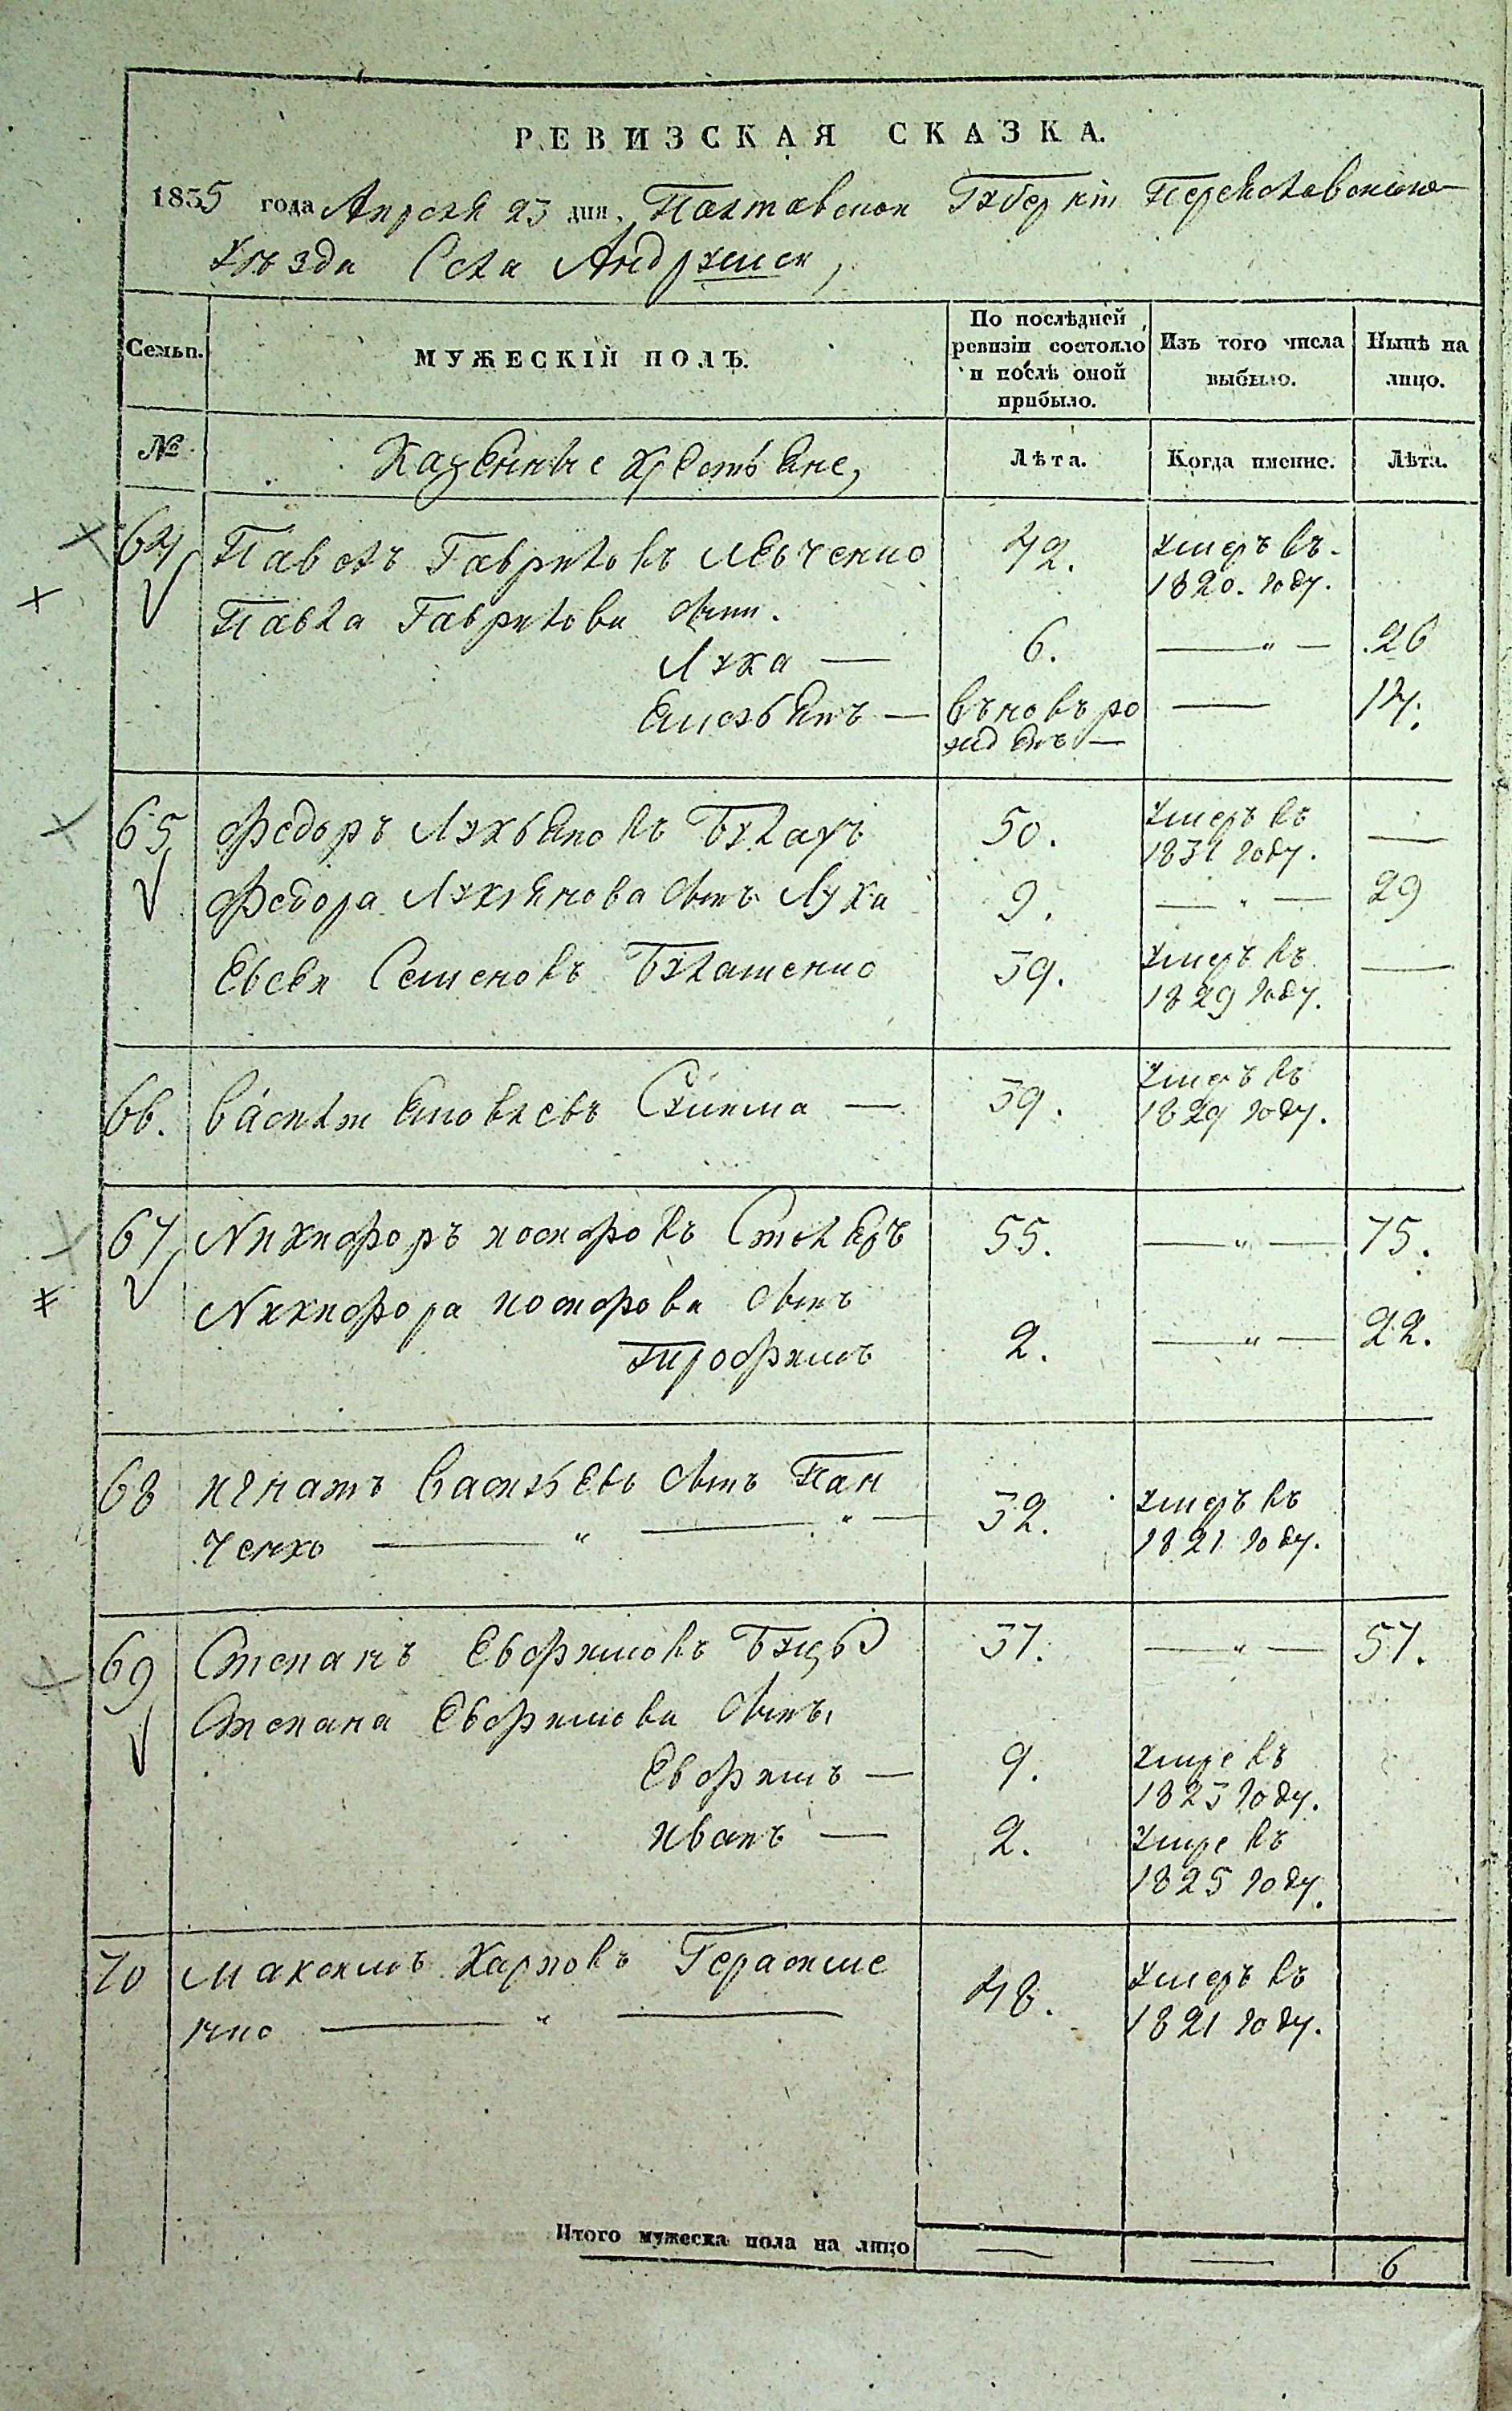 РЕВИЗСКАЯ СКАЗКА.
1835 года Апреля 23 дня. Полтавской Губернiи Переяславского
уѣзда Села Андрушей,
Семьи.
МУЖЕСКІЙ ПОЛЪ.
По послѣдней ревизіи состояло и послѣ оной прибыло.
Изъ того числа выбыло.
Нынѣ на лицо.
№
Казенные крестьяне,
Лѣта.
Когда именно.
Лѣта.
64 Павелъ Гавриловъ 42. умеръ въ
1820. году.
Павла Гаврилова сыни.
Лука — 6. — " — 26
Емельянъ — вновь ро — 14.
жденъ —
65 Федоръ Лукьяновъ Булахъ 50. умеръ въ —
1831 году.
Федора Лукянова сынъ Лука 9. — " — 29
Евсей Семеновъ Булашенко 39. умеръ въ —
1829 году.
66. Василiй Яковлевъ — 39. умеръ въ
1829 году.
67 Никифоръ Столяръ 55. — " — 75.
Никифора сынъ
Трофимъ 2. — " — 22.
68 Игнатъ Васильевъ сынъ Пан 32. умеръ въ
ченко — " — " — 1821 году.
69 Степанъ Евфимовъ 37. — " — 57.
Степана Евфимова сынъ,
Евфимъ — 9. умре въ
1823 году.
Иванъ — 2. умре въ
1825 году.
70 Максимъ Карповъ Герасиме 48. умеръ въ
нко — " — 1821 году.
Итого мужеска пола на лицо — — 6